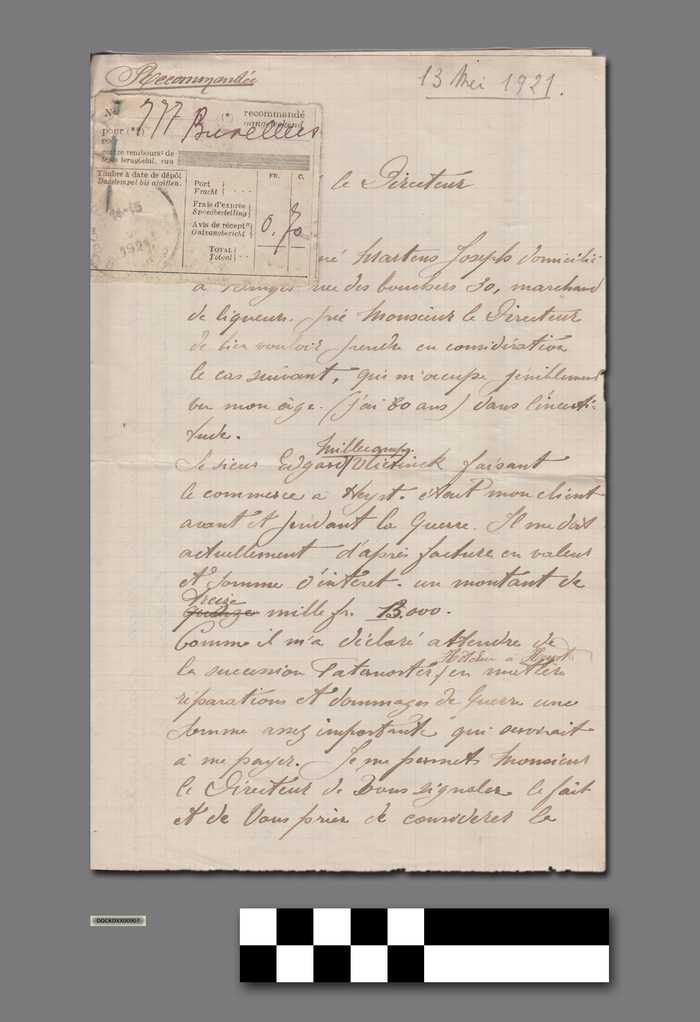 Recommandée
13 Mei 1921.
No 777 Bruxelles
(* recommandé
aangeteekend
pour (*)
contre rembours! de
tegen terugbetal. van
Timbre à date de dépôt
Dagstempel bij afgiften.
FR. C.
Port
Fracht
Frais d'exprès
Spoedbestelling
Avis de récept"
Ontvangbericht
0.70
TOTAL
Totaal
1921
le Directeur
né Martens Joseph domicilié
à rue des bouchers 30, marchand
de liqueurs. prie Monsieur le Directeur
de bien vouloir prendre en considération
le cas suivant, qui m'occupe péniblement
vu mon âge. (j'ai 80 ans) dans l'incerti-
tude.
Millecamps
Le sieur Edgard Vlietinck faisant
le commerce à Heyst. était mon client
avant et pendant la Guerre. Il me doit
actuellement d'après facture en valeur
et somme d'intéret. un montant de
treize
quinze mille fr. 13.000.
Comme il m'a déclaré attendre de
la succession Paternoster en matière
à Heyst
réparations et dommages de Guerre une
somme assez importante qui servirait
à me payer. Je me permets Monsieur
le Directeur de Vous signaler le fait
et de Vous prier de considerer la
DOCKDXX00907